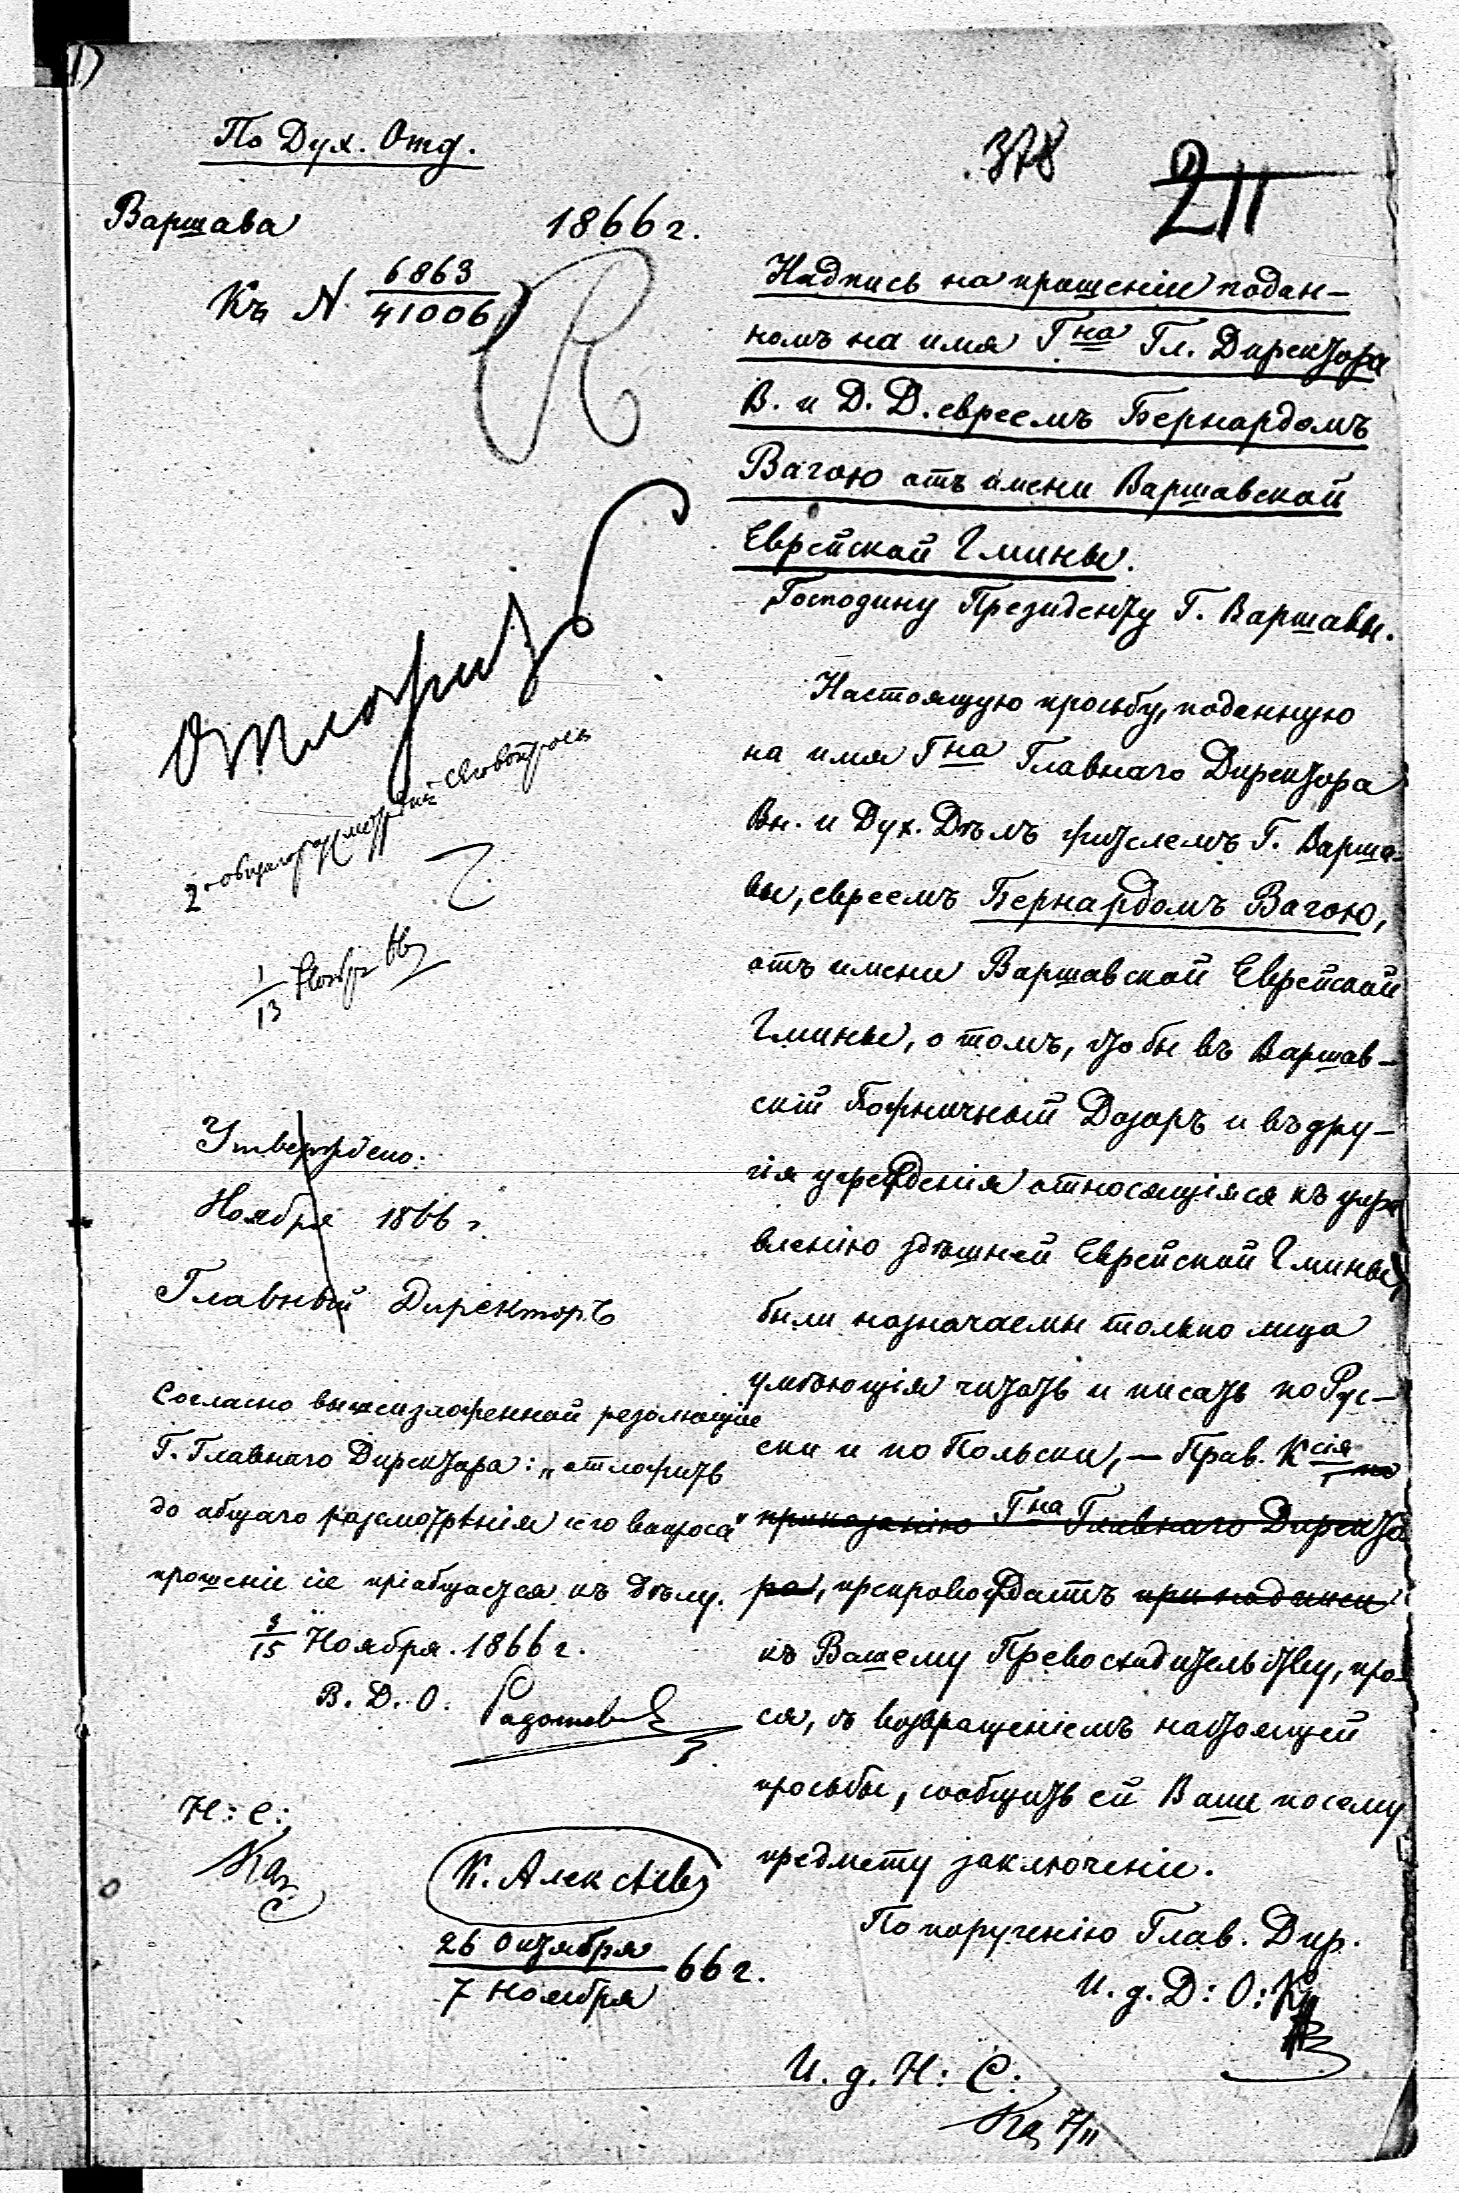 По Дух. Отд.
Варшава 1866 г.
Къ N. 6863/41006
378
211
Надпись на прошеніи подан-
номъ на имя Гна Гл. Директора
В. и Д. Д. евреемъ Бернардомъ
Вагою отъ имени Варшавской
Еврейской Гмины.
Господину Президенту Г. Варшавы.
Настоящую просьбу, поданную
на имя Гна Главнаго Директора
Вн. и Дух. Дѣлъ жителемъ Г. Варша-
вы, евреемъ Бернардомъ Вагою,
отъ имени Варшавской Еврейской
Гмины, о томъ, чтобы въ Варшав-
скій Божничный Дозоръ и въ дру-
гія учрежденія относящіяся къ упра
вленію здѣшней Еврейской Гмины,
были назначаемы только лица
умѣющія читать и писать по Рус-
ски и по Польски, — Прав. Ксія по
приказанію Гна Главнаго Директо
ра, препровождаетъ при надписи
къ Вашему Превосходительству, про-
ся, съ возвращеніемъ настоящей
просьбы, сообщить ей Ваше по сему
предмету заключеніе.
По порученію Глав. Дир.
И. д. Д: О:
И. д. Н: С:
7/11
отложить
до общаго разсмотрѣнія сего вопроса
1/13 Ноября 66
Утверждено:
Ноября 1866 г.
Главный Директоръ
Согласно вышеизложенной резолюціи
Г. Главнаго Директора: „отложить
до общаго разсмотрѣнія сего вопроса"
прошеніе сіе пріобщается къ дѣлу.
3/15 Ноября 1866 г.
В. Д. О.
Н: С:
К. Алексѣевъ
26 Октября
7 Ноября 66 г.